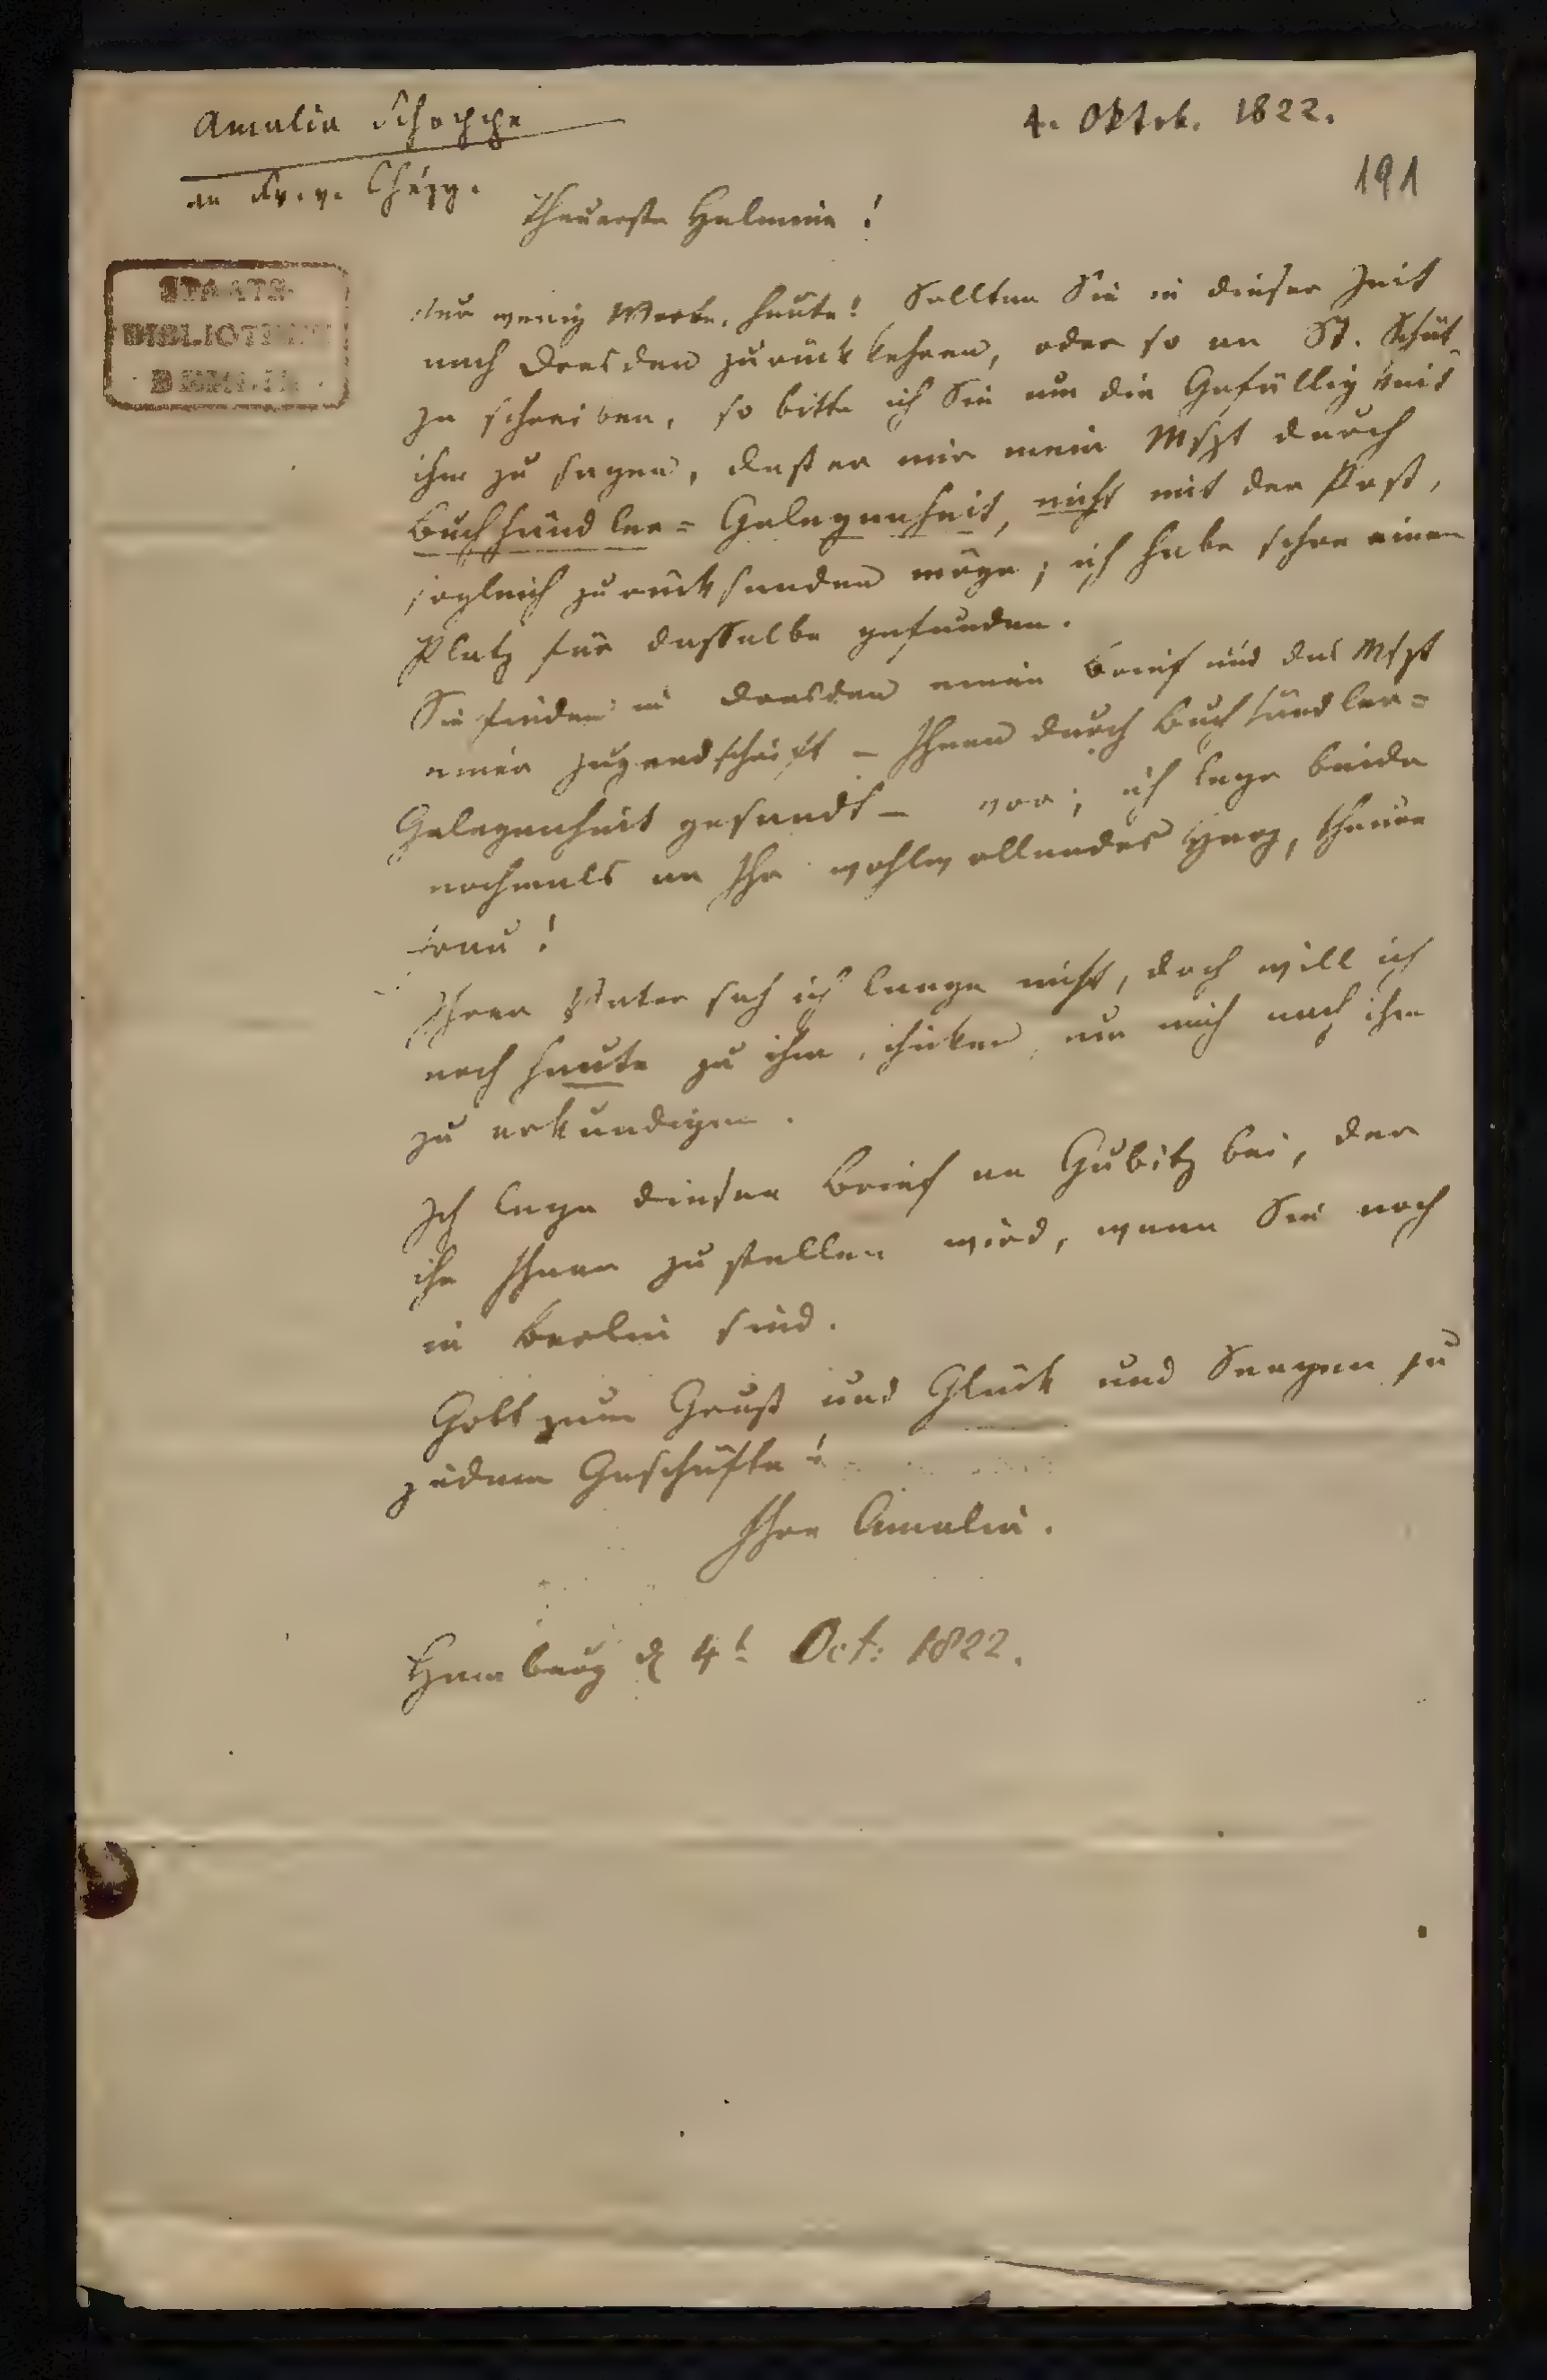 Amalia Schoppe
4. Oktob. 1822.
an Fr. v. Chézy.
191
Theuerste Helmina!
STAATS-
BIBLIOTHEK
BERLIN
Nur wenig Worte, heute! Sollten Sie in dieser Zeit
nach Dresden zurückkehren, oder so an St. Schüt
ze schreiben, so bitte ich Sie um die Gefälligkeit
ihm zu sagen, daß er mir mein Mspt durch
Buchhändler=Gelegenheit, nicht mit der Post,
sogleich zurücksenden möge; ich habe schon einen
Platz für dasselbe gefunden.
Sie finden in Dresden einen Brief und das Mspt
einer Jugendschrift – Ihnen durch Buchhändler=
Gelegenheit gesandt – vor; ich lege beide
nochmals an Ihr wohlwollendes Herz, theure
Frau!
Ihren Vater sah ich lange nicht, doch will ich
noch heute zu ihm schicken, um mich nach ihm
zu erkundigen.
Ich lege diesen Brief an Gubitz bei, der
ihn Ihnen zustellen wird, wenn Sie noch
in Berlin sind.
Gott zum Gruß und Glück und Seegen zu
jedem Geschäfte!
Ihre Amalia.
Hamburg d 4t Oct: 1822.